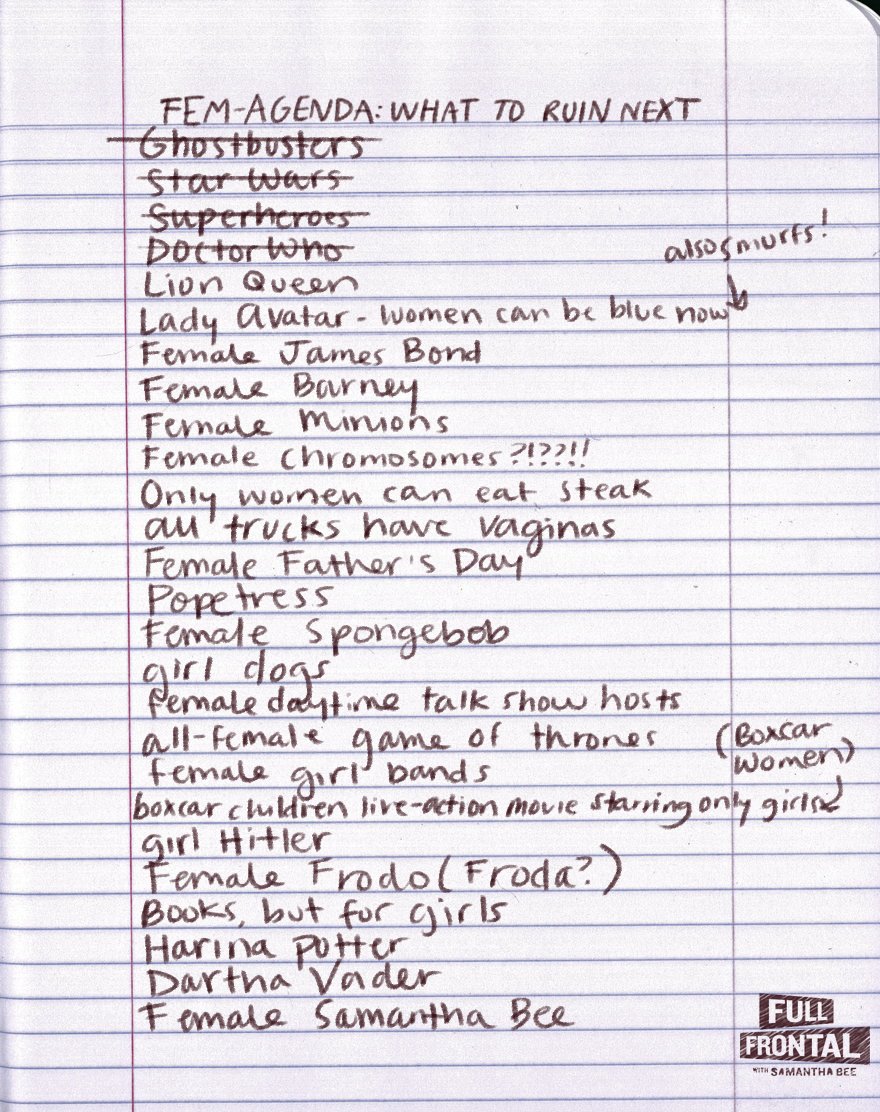 FEM-AGENDA: WHAT TO RUIN NEXT
Ghostbusters
Star Wars
Superheroes
Doctor Who
also smurfs!
Lion Queen
Lady Avatar - women can be blue now
Female James Bond
Female Barney
Female Minions
Female chromosomes?!??!!
Only women can eat steak
all trucks have vaginas
Female Father's Day
Popetress
Female Spongebob
girl dogs
female daytime talk show hosts
all-female game of thrones
(Boxcar
Women)
female girl bands
boxcar children live-action movie starring only girls
girl Hitler
Female Frodo (Froda?)
Books, but for girls
Harina Potter
Dartha Vader
Female Samantha Bee
FULL
FRONTAL
WITH SAMANTHA BEE